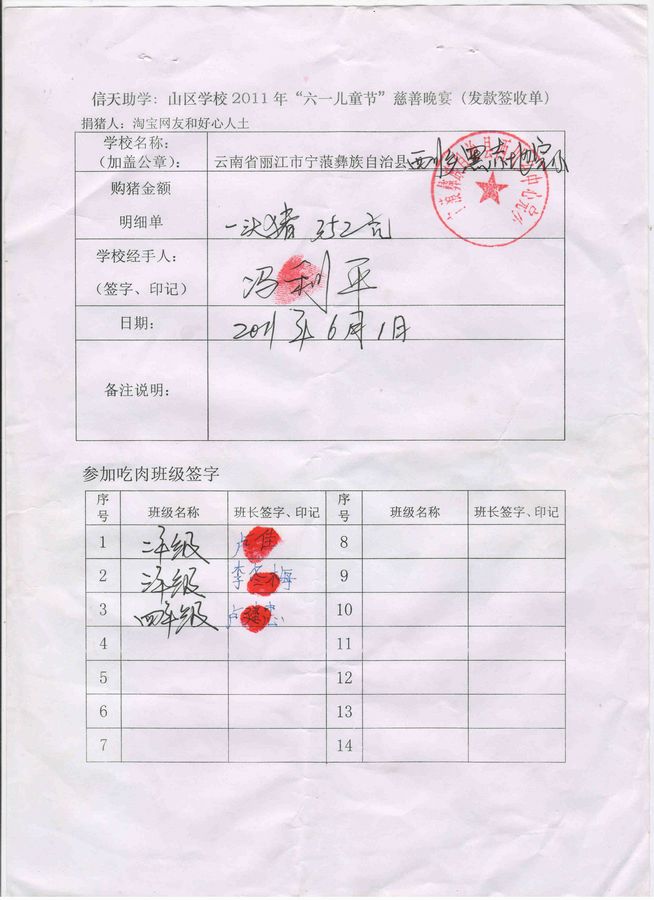 信天助学：山区学校2011年“六一儿童节”慈善晚宴（发款签收单）
捐猪人：淘宝网友和好心人士
学校名称：
（加盖公章）： 云南省丽江市宁蒗彝族自治县
购猪金额
明细单 一头猪 352元
学校经手人：
（签字、印记） 冯利平
日期： 2011年6月1日
备注说明：
参加吃肉班级签字
序号 班级名称 班长签字、印记 序号 班级名称 班长签字、印记
1 二年级 卢 8
2 三年级 李冬梅 9
3 四年级 卢 10
4 11
5 12
6 13
7 14